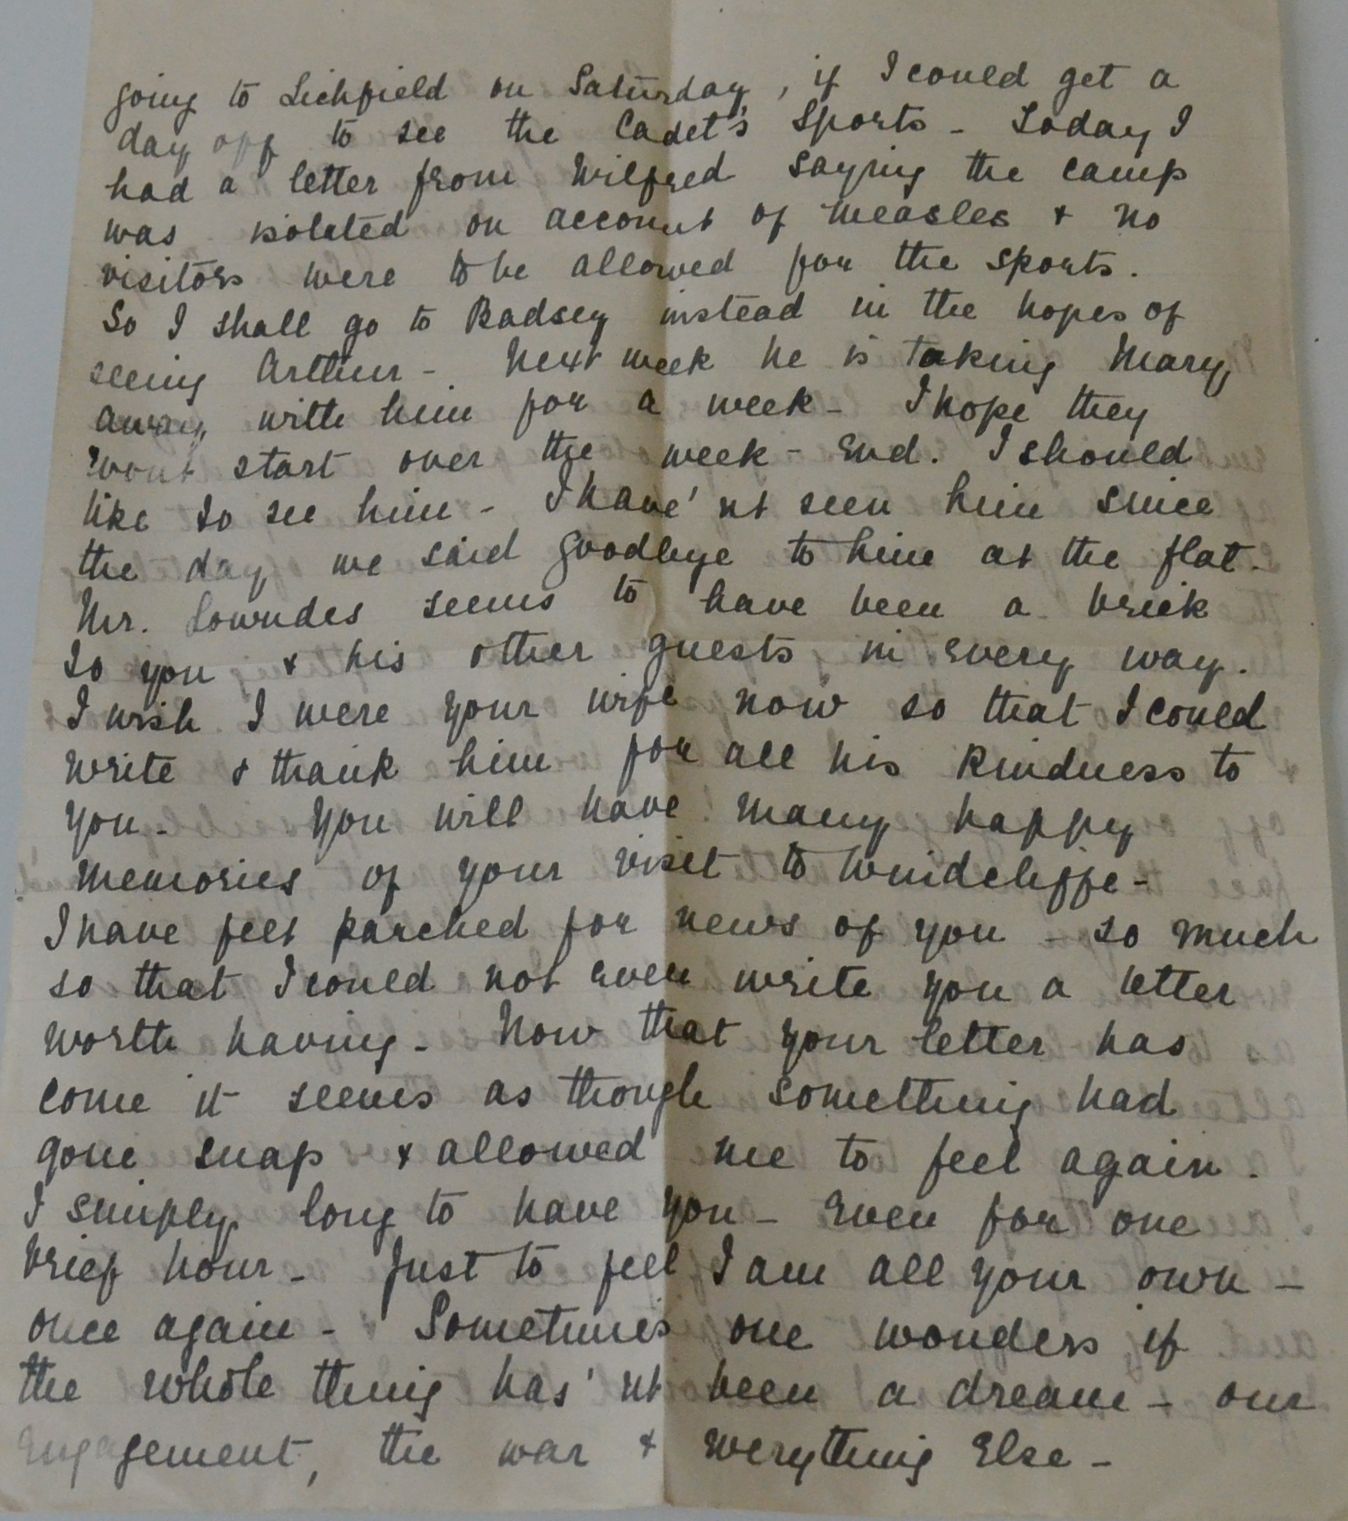 going to Lichfield on Saturday, if I could get a
day off to see the Cadet's Sports - Today I
had a letter from Wilfred saying the camp
was isolated on account of measles & no
visitors were to be allowed for the sports.
So I shall go to Badsey instead in the hopes of
seeing Arthur - Next week he is taking Mary
away with him for a week - I hope they
wont start over the week-end. I should
like to see him - I have'nt seen him since
the day we said goodbye to him at the flat -
Mr. Lowndes seems to have been a brick
to you & his other guests in every way.
I wish I were your wife now so that I could
write & thank him for all his kindness to
you - You will have many happy
memories of your visit to Windcliffe -
I have felt parched for news of you - so much
so that I could not even write you a letter
worth having - Now that your letter has
come it seems as though something had
gone snap & allowed me to feel again.
I simply long to have you - even for one
brief hour - Just to feel I am all your own -
once again - Sometimes one wonders if
the whole thing has'nt been a dream - our
engagement, the war & everything else -